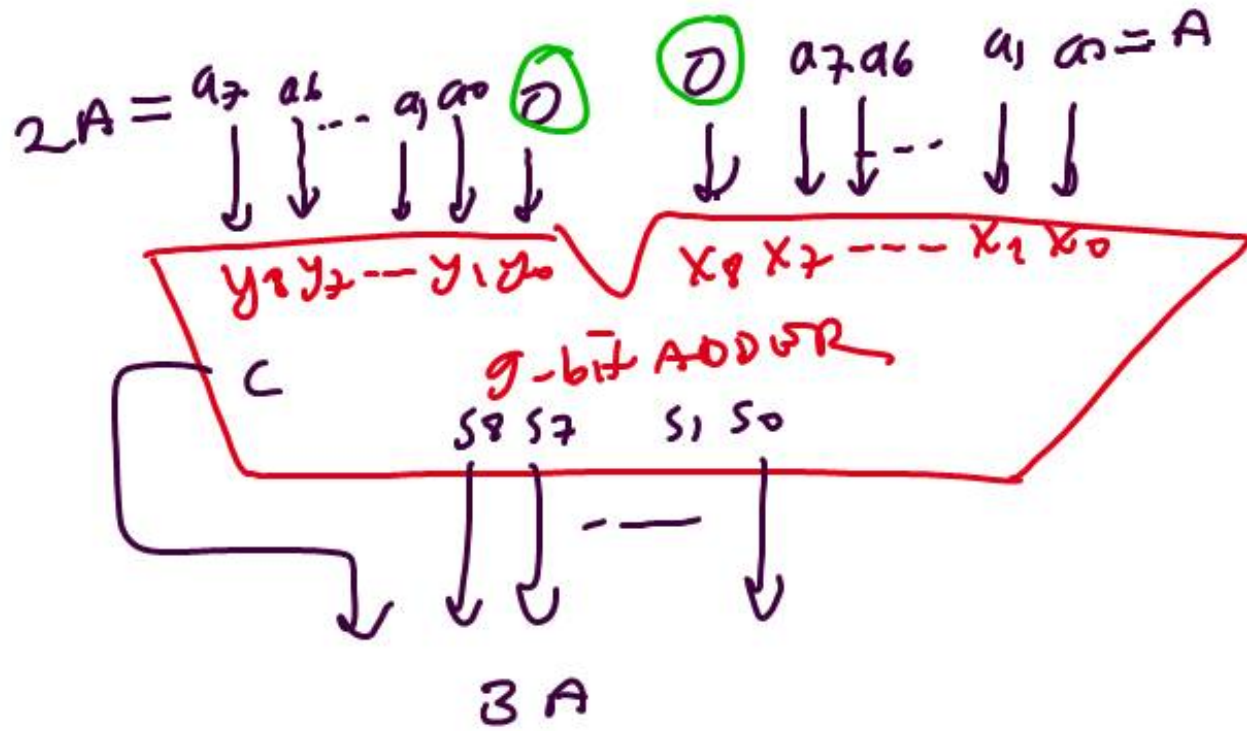 2A = a7 a6 ... a1 a0 0 0 a7 a6 ... a1 a0 = A
y8 y7 --- y1 y0 x8 x7 --- x1 x0
9-bit ADDER
C
S8 S7 S1 S0
3A